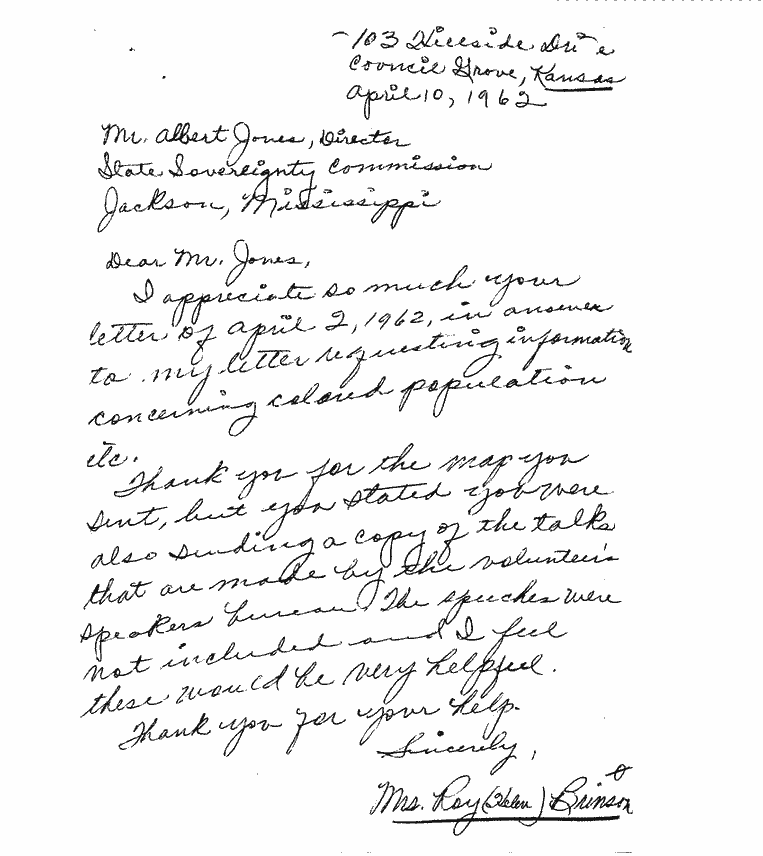 103 Hillside Drive
Council Grove, Kansas
April 10, 1962
Mr. Albert Jones, Director
State Sovereignty Commission
Jackson, Mississippi
Dear Mr. Jones,
I appreciate so much your
letter of April 2, 1962, in answer
to my letter requesting information
concerning colored population
etc.
Thank you for the map you
sent, but you stated you were
also sending a copy of the talks
that are made by the volunteers
speakers bureau. The speeches were
not included and I feel
these would be very helpful.
Thank you for your help.
Sincerely,
Mrs. Roy (Helen) Brinson